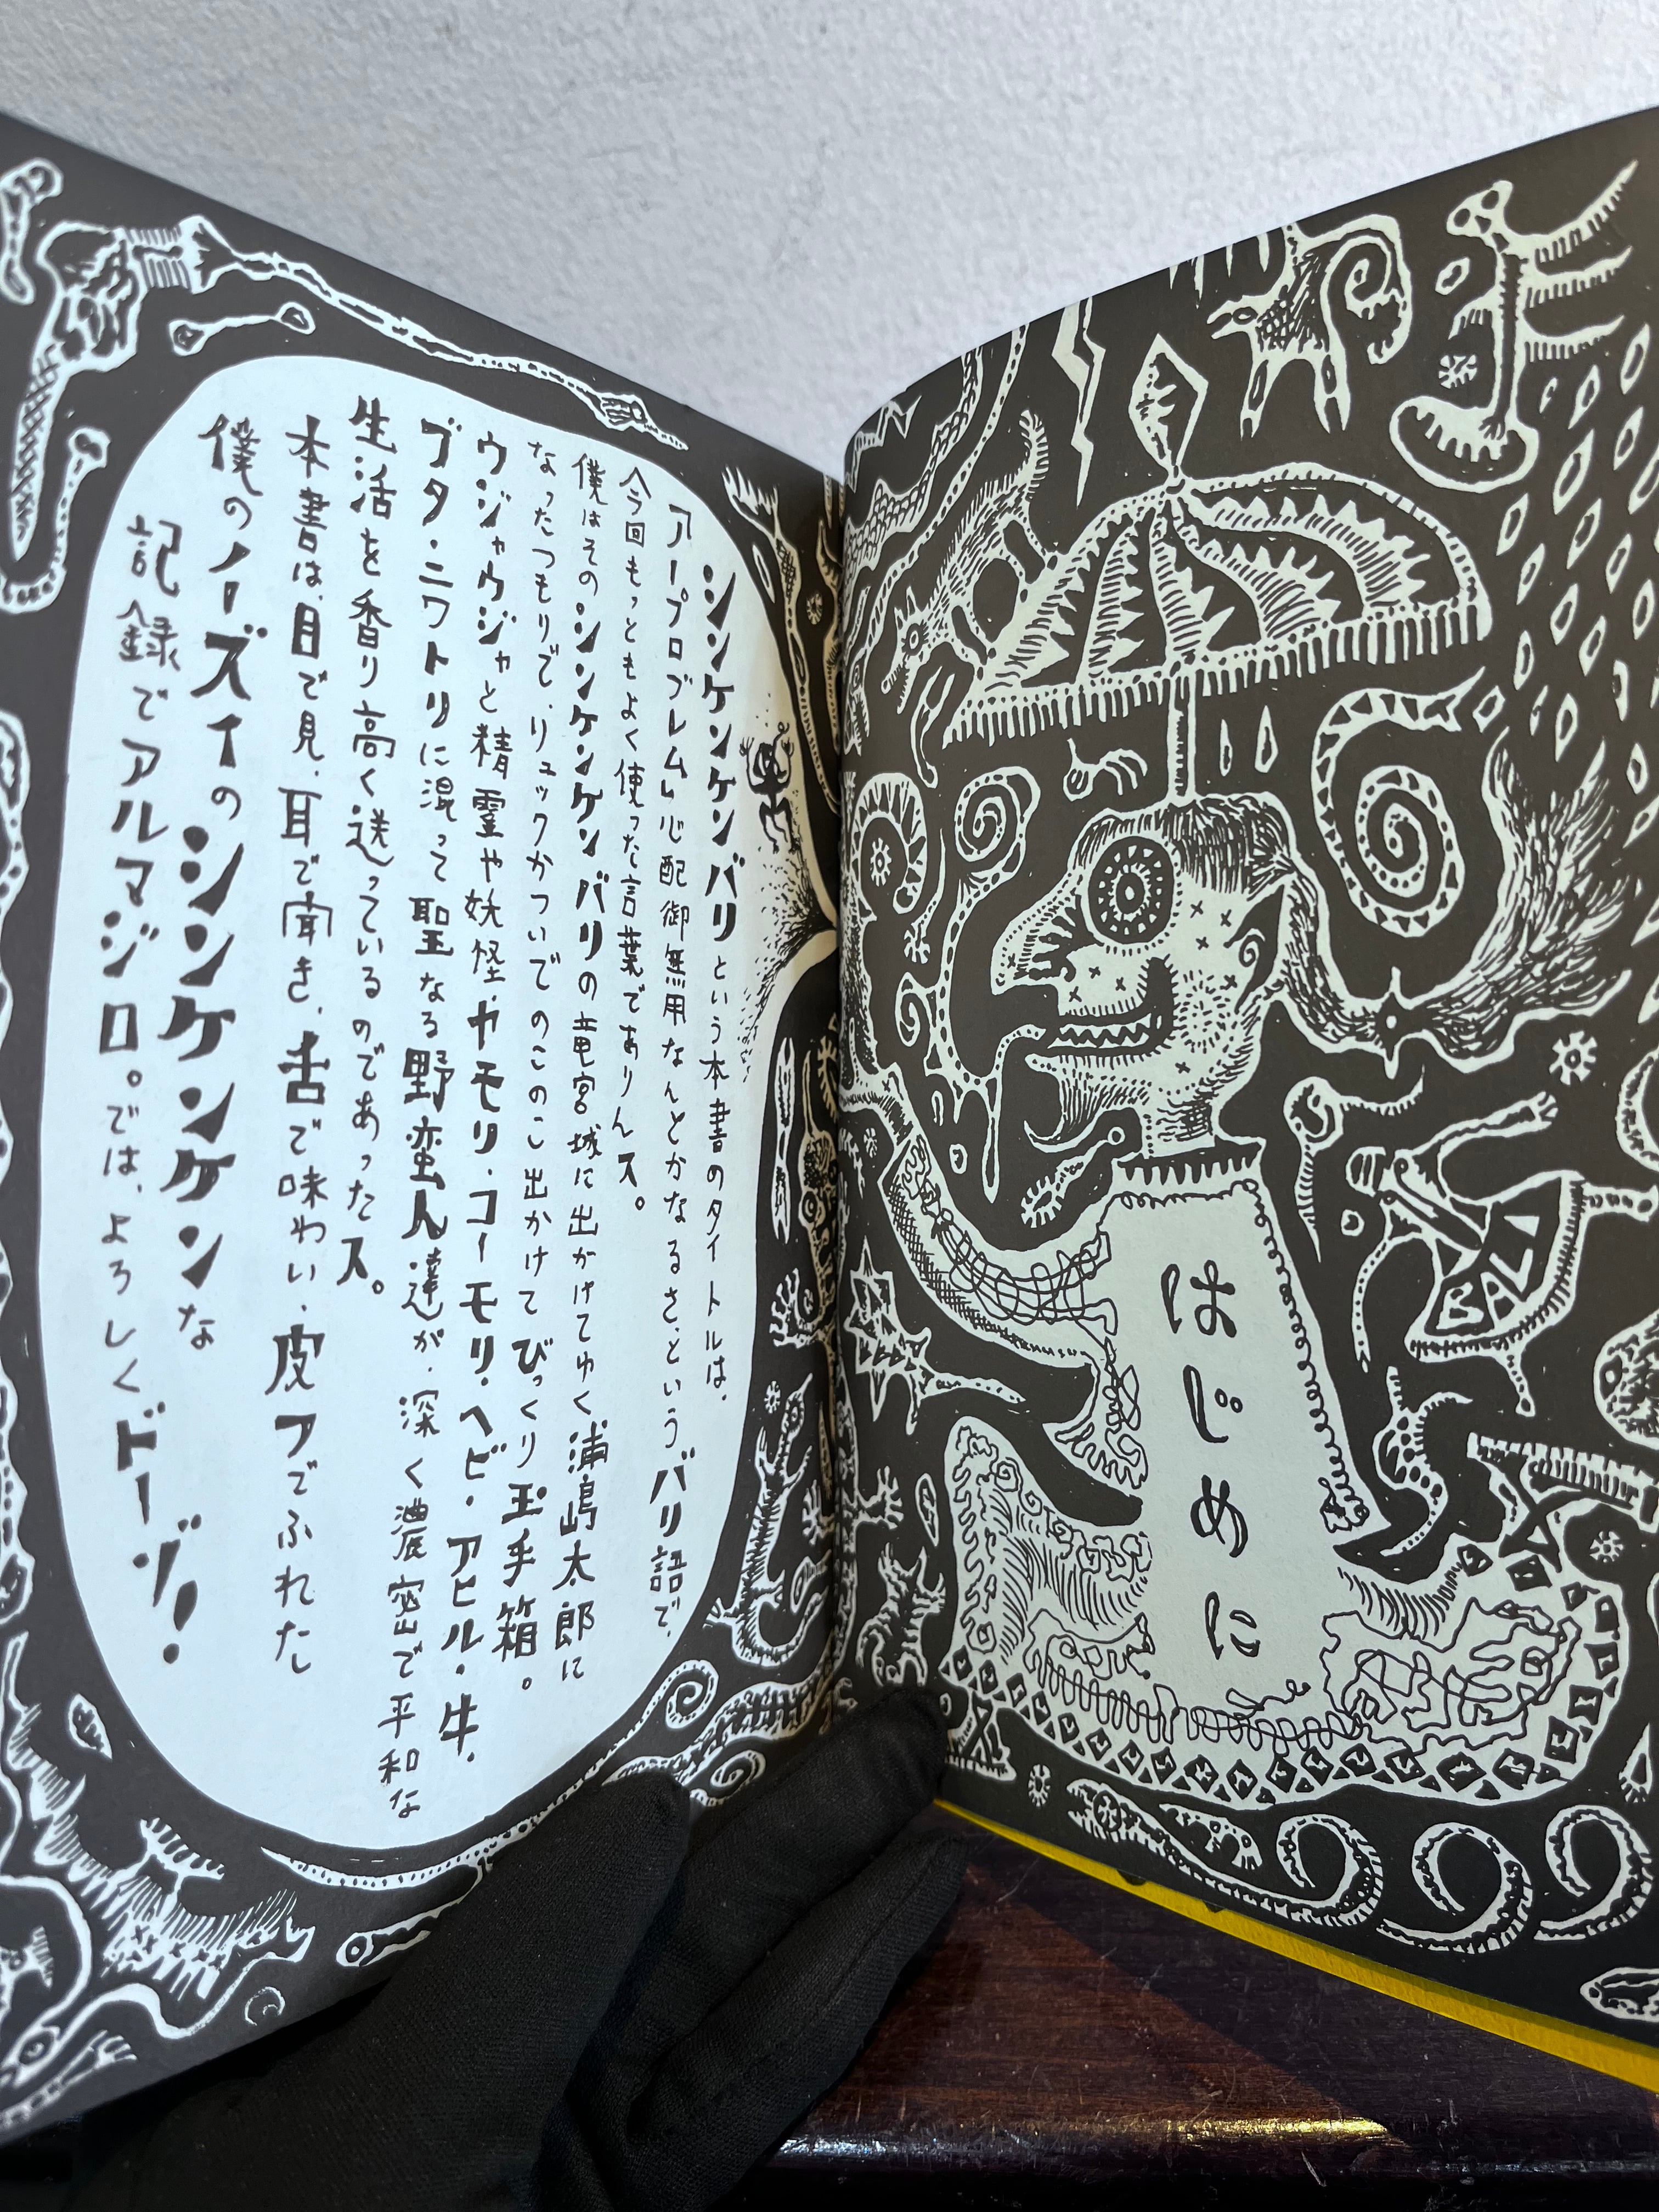 はじめに
BALI
シンケンケンケンバリという本書のタイトルは、
「アープロブレム」心配御無用なんとかなるさ、というバリ語で、
今回もっともよく使った言葉でありんス。
僕はそのシンケンケンケンバリの竜宮城に出かけてゆく浦嶋太郎に
なったつもりで、リュックかついでのこのこ出かけてびっくり玉手箱。
ウジャウジャと精霊や妖怪、ヤモリ、コーモリ、ヘビ、アヒル、牛、
ブタ・ニワトリに混って聖なる野蛮人達が、深く濃密で平和な
生活を香り高く送っているのであったス。
本書は、目で見、耳で聞き、舌で味わい、皮フでふれた
僕のノーズイのシンケンケンケンな
記録でアルマジロ。では、よろしくドーゾ！